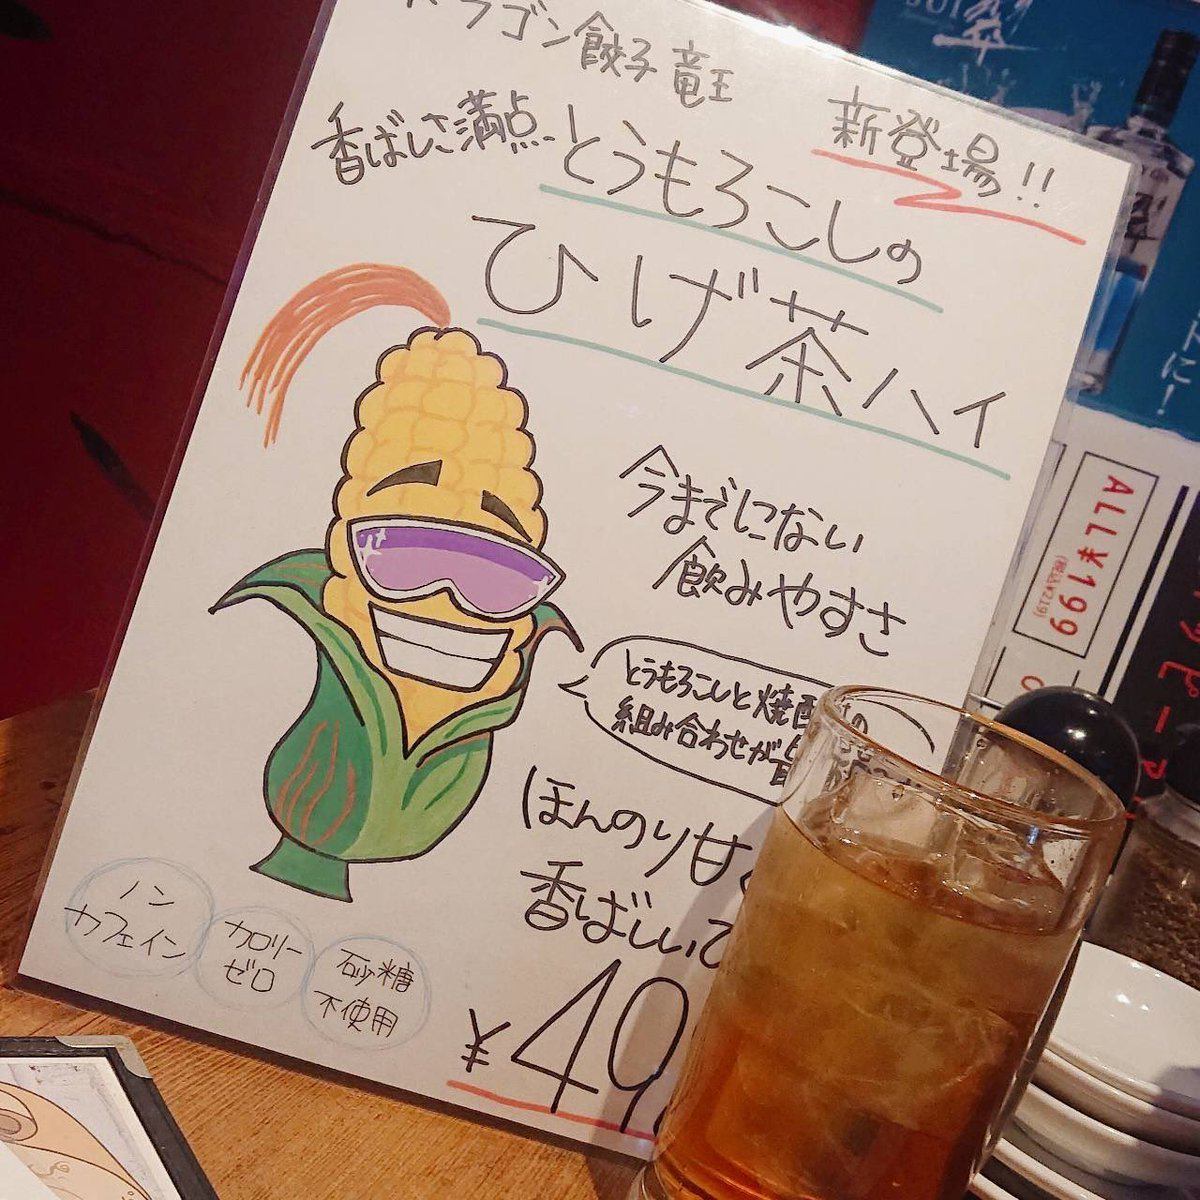 ドラゴン餃子 竜王
新登場!!
香ばしさ満点
とうもろこしの
ひげ茶ハイ
今までにない
飲みやすさ
とうもろこしと焼酎の
組み合わせが
ほんのり甘
香ばしい
ノン
カフェイン
カロリー
ゼロ
砂糖
不使用
翠
に!
ALL¥199
(税込¥219)